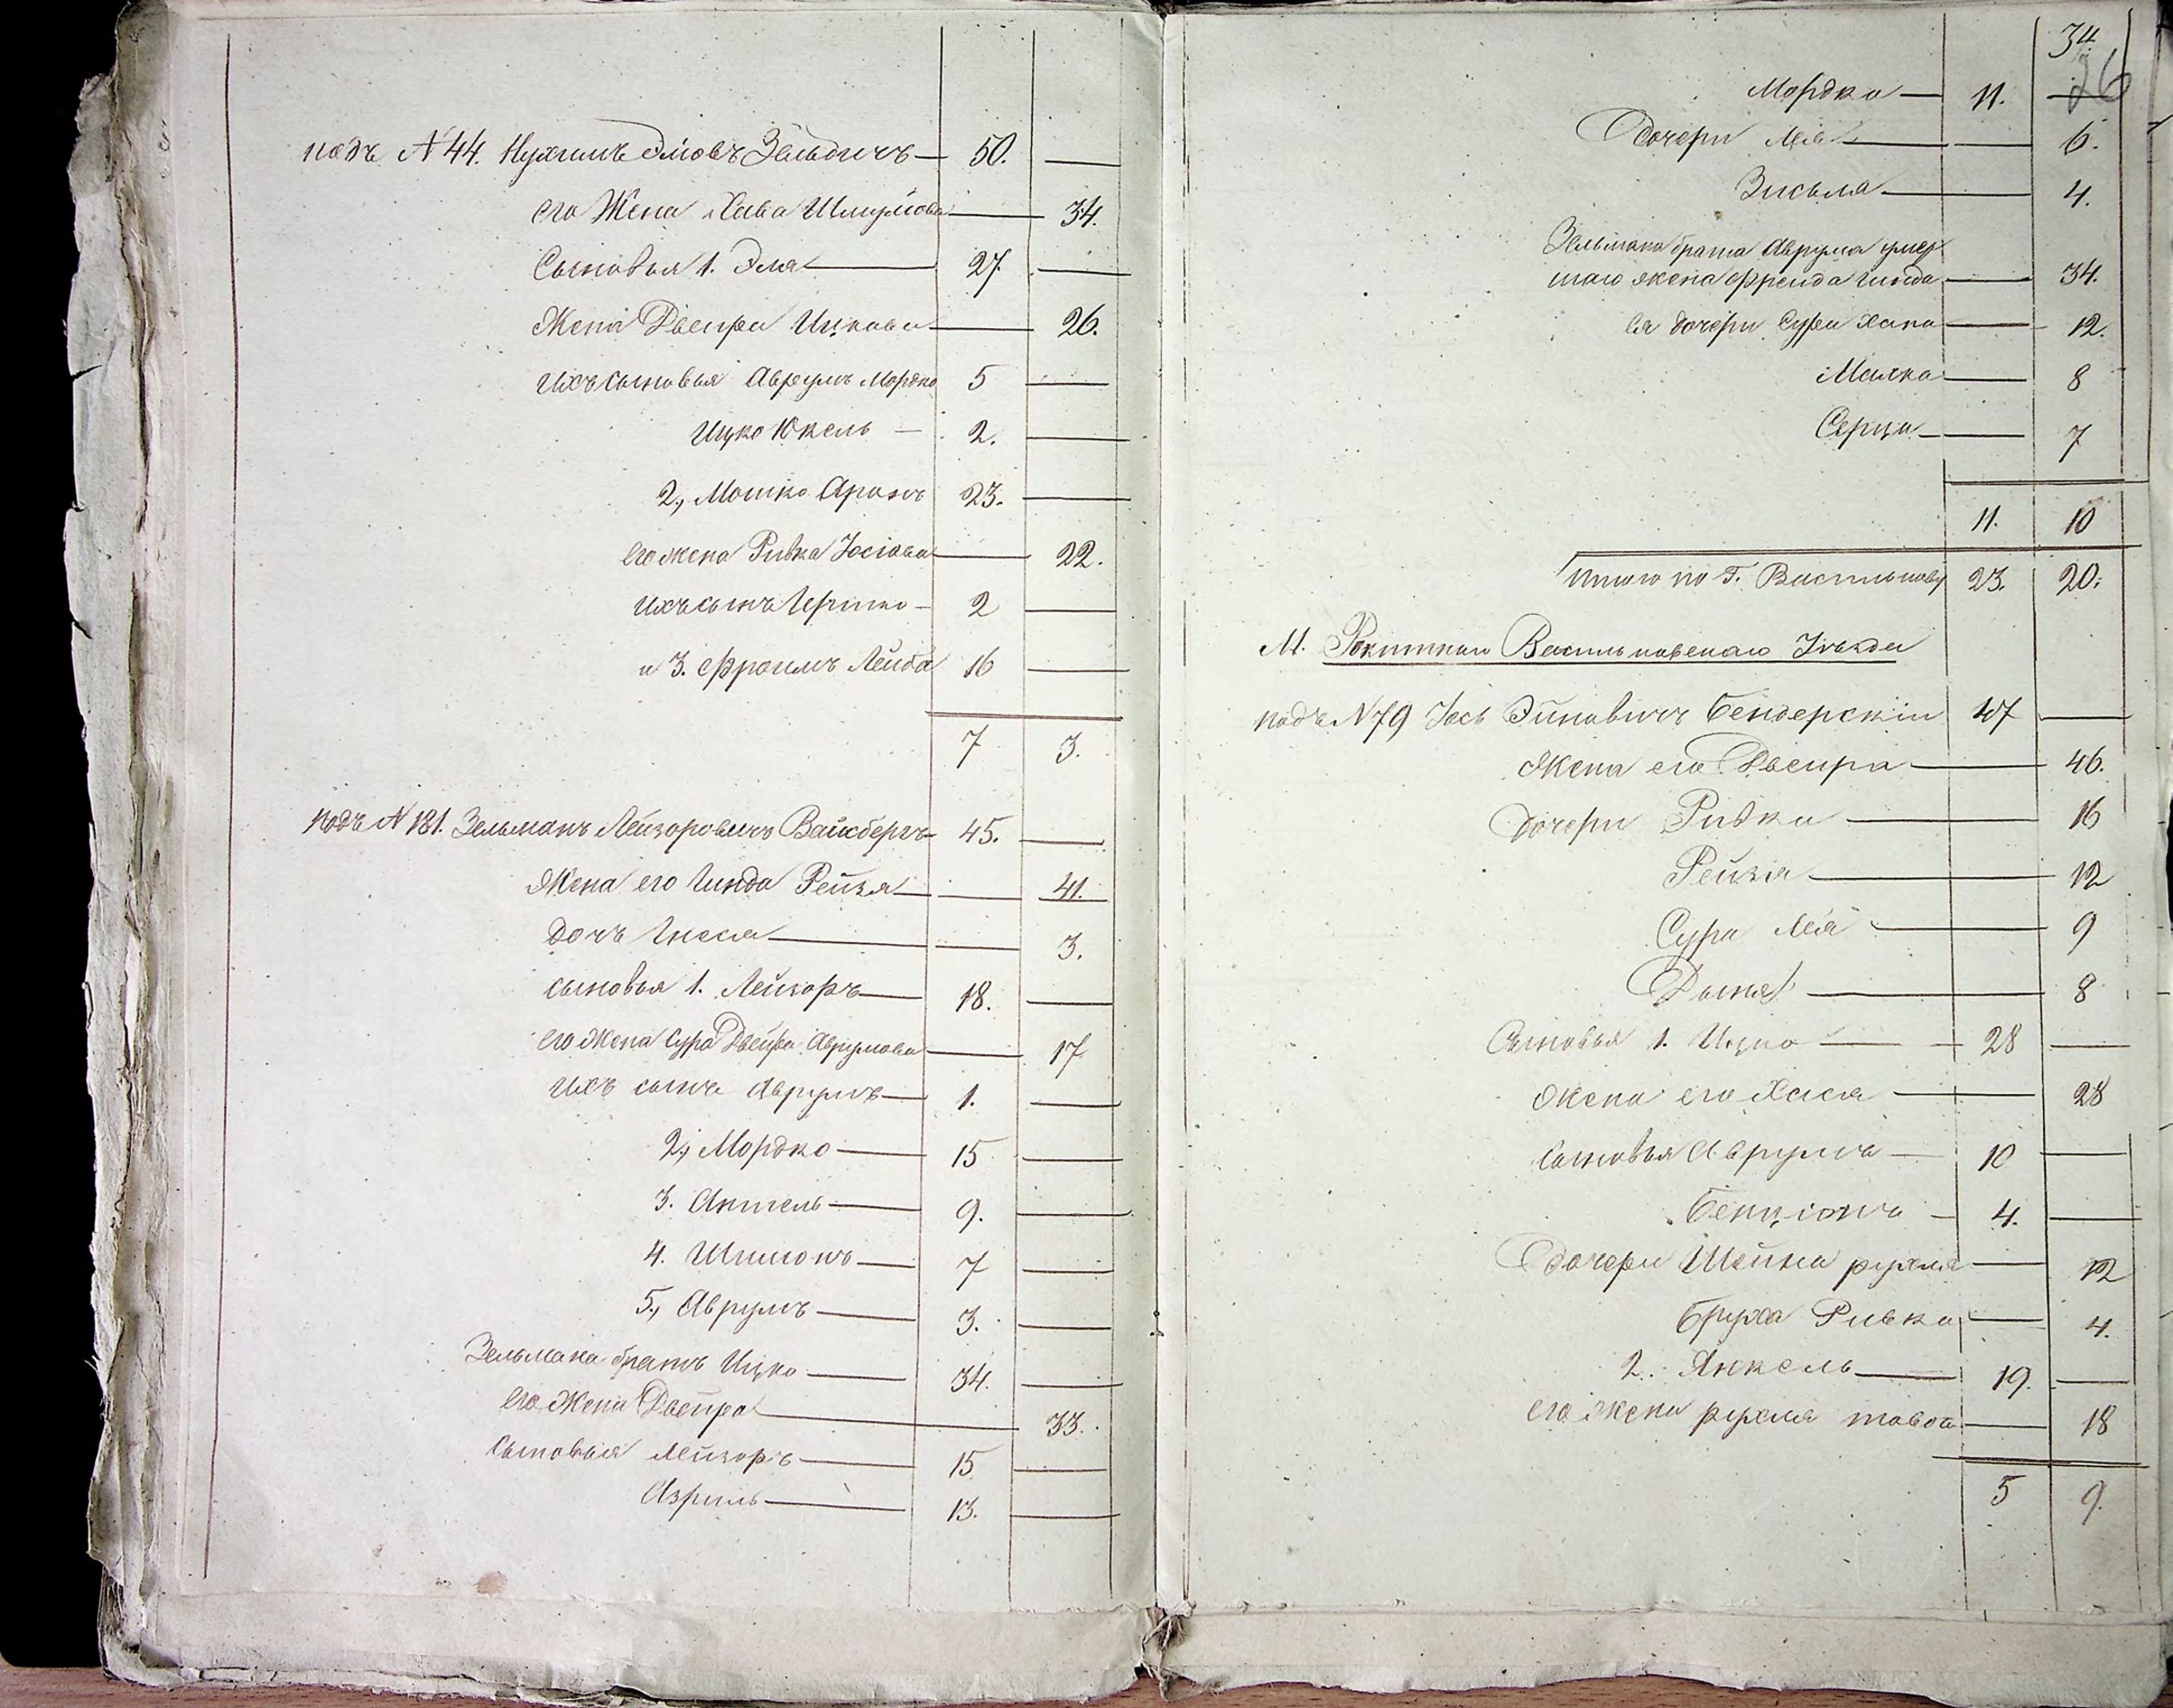 подъ N 44. Нухимъ Эліовъ Зельдичъ — 50. —
его Жена Хава Шмулiова — 34.
Сыновья 1. Эля — 27. —
Жена Двейра Ицкова — 26.
ихъ сыновья Аврумъ Мордко 5 —
Ицко Юкель — 2. —
2, Мошко Аронъ 23. —
его жена Ривка Іосіова — 22.
ихъ сынъ Гершко — 2 —
и 3. Эфроимъ Лейба 16 —
7 3.
подъ N 181. Зельманъ Лейзоровичъ Вайсбергъ — 45. —
Жена его Гинда Рейзя — 41.
дочь Гнеся — 3.
сыновья 1. Лейзоръ — 18. —
его Жена Сура Двейра Аврумова — 17
ихъ сынъ Аврумъ — 1. —
2, Мордко — 15 —
3. Антель — 9. —
4. Шимонъ — 7 —
5, Аврумъ — 3. —
Зельмана братъ Ицко — 34. —
его Жена Двейра — 33.
Сыновья Лейзоръ — 15 —
Азриль — 13. —
34
26
Мордко — 11. —
Дочери Лея — 6.
Зисьля — 4.
Зельмана брата Аврума умер
шаго жена Фрейда Гинда — 34.
ея дочери Сура Хана — 12.
Малка — 8
Серца — 7
11. 10
Итого по Г. Василькову 23. 20.
М. Рокитного Васильковскаго Уезда
подъ N 79 Іось Эйновичъ Бендерскій 47 —
Жена его Двейра — 46.
Дочери Ривка — 16
Рейзя — 12
Сура Лея — 9
Дыня — 8
Сыновья 1. Ицко — 28 —
Жена его Хася — 28
Сыновья Аврумъ — 10 —
Бенціонъ — 4. —
Дочери Шейна рухля — 12
Бруха Ривка — 4.
2. Янкель — 19. —
его жена рухля товба — 18
5 9.